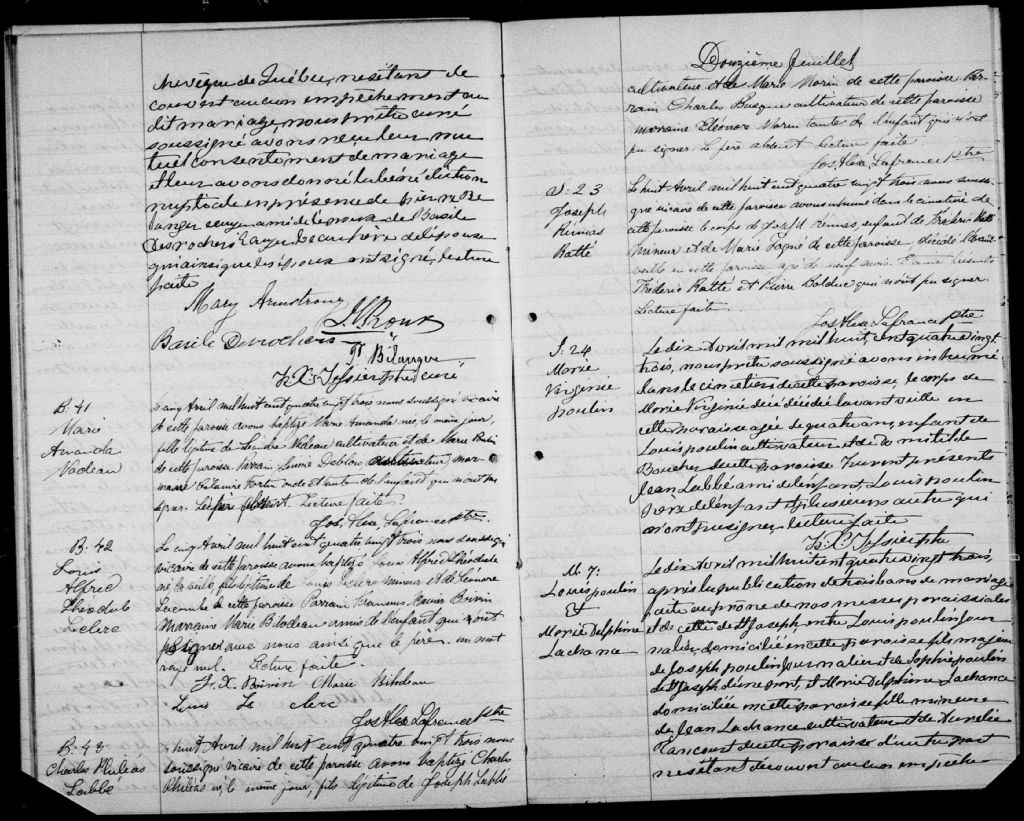 chevêque de Québec, ne s'étant de
couvert aucun empêchement au
dit mariage, nous prêtre curé
soussigné avons reçu leur mu
tuel consentement de mariage
et leur avons donné la bénédiction
nuptiale en présence de
langer ami de l'époux de Basile
Desrochers de l'épouse
qui ainsi que les époux ont signé, lecture
faite
Mary Armstrong
Basile Desrochers
Bélanger
F. X. Tessier ptre curé
B. 41
Marie
Amanda
Nadeau
Le cinq Avril mil huit cent quatre vingt trois nous soussigné vicaire
de cette paroisse avons baptisé Marie Amanda née le même jour,
fille légitime de Nadeau cultivateur et de Marie
de cette paroisse. Parrain Deblois mar-
raine Fortin oncle et tante de l'enfant qui n'ont su
signer. Le père absent. Lecture faite.
Jos. Alex. Lafrance ptre
B. 42
Louis
Alfred
Théodule
Leclerc
Le cinq Avril mil huit cent quatre vingt trois nous soussigné
vicaire de cette paroisse avons baptisé Louis Alfred Théodule
né la veille, fils légitime de Louis Leclerc mineur et de Léonore
Lacombe de cette paroisse. Parrain Xavier Boivin
Marraine Marie Bilodeau amis de l'enfant qui ont
signé avec nous ainsi que le père. un mot
rayé nul. Lecture faite.
F. X. Boivin Marie Bilodeau
Luis Le clerc
Jos. Alex. Lafrance ptre
B. 43
Charles Philéas
Labbé
Le huit Avril mil huit cent quatre vingt trois nous
soussigné vicaire de cette paroisse avons baptisé Charles
Philéas né le même jour, fils légitime de Joseph Labbé
Douzième feuillet
cultivateur et de Marie Morin de cette paroisse Par-
rain Charles Busque cultivateur de cette paroisse
marraine Eléonore Morin tante de l'enfant qui n'ont
pu signer. Le père absent Lecture faite
Jos. Alex. Lafrance ptre
S. 23
Joseph
Rémias
Ratté
Le huit Avril mil huit cent quatre vingt trois nous soussi-
gné vicaire de cette paroisse avons inhumé dans le cimetière de
cette paroisse le corps de Joseph Rémias, enfant de Fréderic Ratté
mineur et de Marie Gagné de cette paroisse, décédé l'avant
veille en cette paroisse agé de neuf mois. Etaient présents
Fréderic Ratté et Pierre Bolduc qui n'ont pu signer.
Lecture faite.
Jos. Alex. Lafrance ptre
S. 24
Marie
Virginie
poulin
Le dix Avril mil huit cent quatre vingt
trois, nous prêtre soussigné avons inhumé
dans le cimetière de cette paroisse, le corps de
Marie Virginie décédée l'avant veille en
cette paroisse agée de quatre ans, enfant de
Louis poulin cultivateur et de Domitilde
Boucher de cette paroisse. Furent présents
Jean Labbé ami de l'enfant Louis poulin
père de l'enfant et plusieurs autres qui
n'ont pu signer, lecture faite
F. X. Tessier ptre
M. 7:
Louis poulin
&
Marie Delphine
Lachance
Le dix Avril mil huit cent quatre vingt trois,
après la publication de trois bans de mariage
faite au prône de nos messes paroissiales
et de celle de St Joseph entre Louis poulin jour
nalier, domicilié en cette paroisse fils majeur
de Joseph poulin journalier et de Sophie poulin
de St Joseph d'une part, et Marie Delphine Lachance
domiciliée en cette paroisse fille mineure
de Jean Lachance cultivateur et de Aurélie
Rancourt de cette paroisse d'autre part
ne s'étant découvert aucun empêche